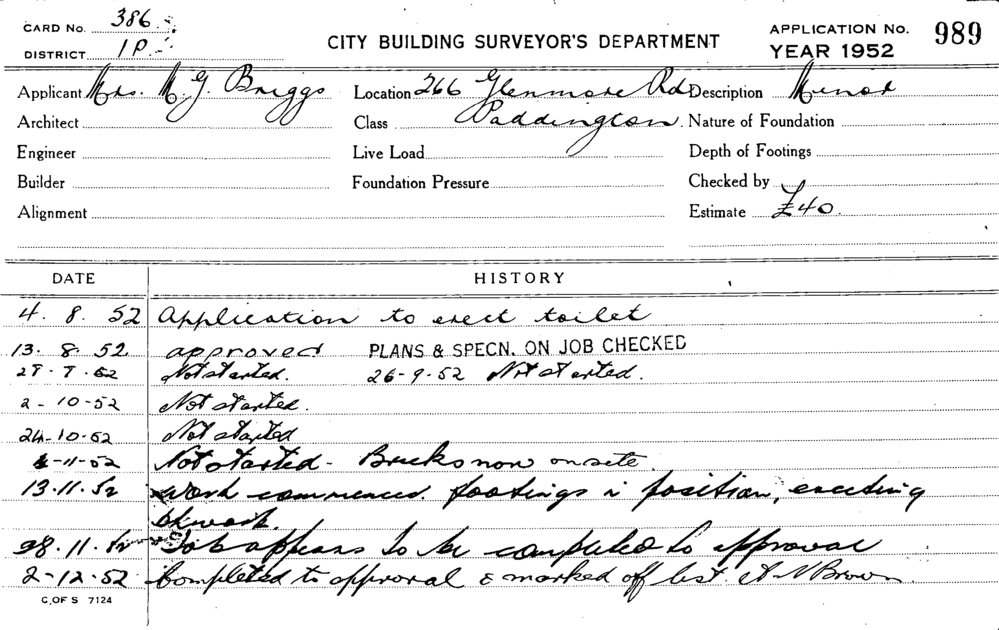 CARD No. 386
DISTRICT 1P.
CITY BUILDING SURVEYOR'S DEPARTMENT
APPLICATION No. 989
YEAR 1952
Applicant Mrs. M. J. Briggs Location 266 Glenmore Rd Description Minor
Architect Class Paddington. Nature of Foundation
Engineer Live Load Depth of Footings
Builder Foundation Pressure Checked by
Alignment Estimate £40.
DATE HISTORY
4. 8. 52 Application to erect toilet
13. 8. 52 approved PLANS & SPECN. ON JOB CHECKED
Not started. 26-9-52 Not started.
2-10-52 Not started.
24-10-52 Not started
-11-52 Not started - Bricks now on site.
13.11.52 Work commenced. footings in position, erecting
bkwork.
28.11.52 Job appears to be completed to approval
2-12-52 Completed to approval & marked off list. A N Brown.
C.OF S 7124